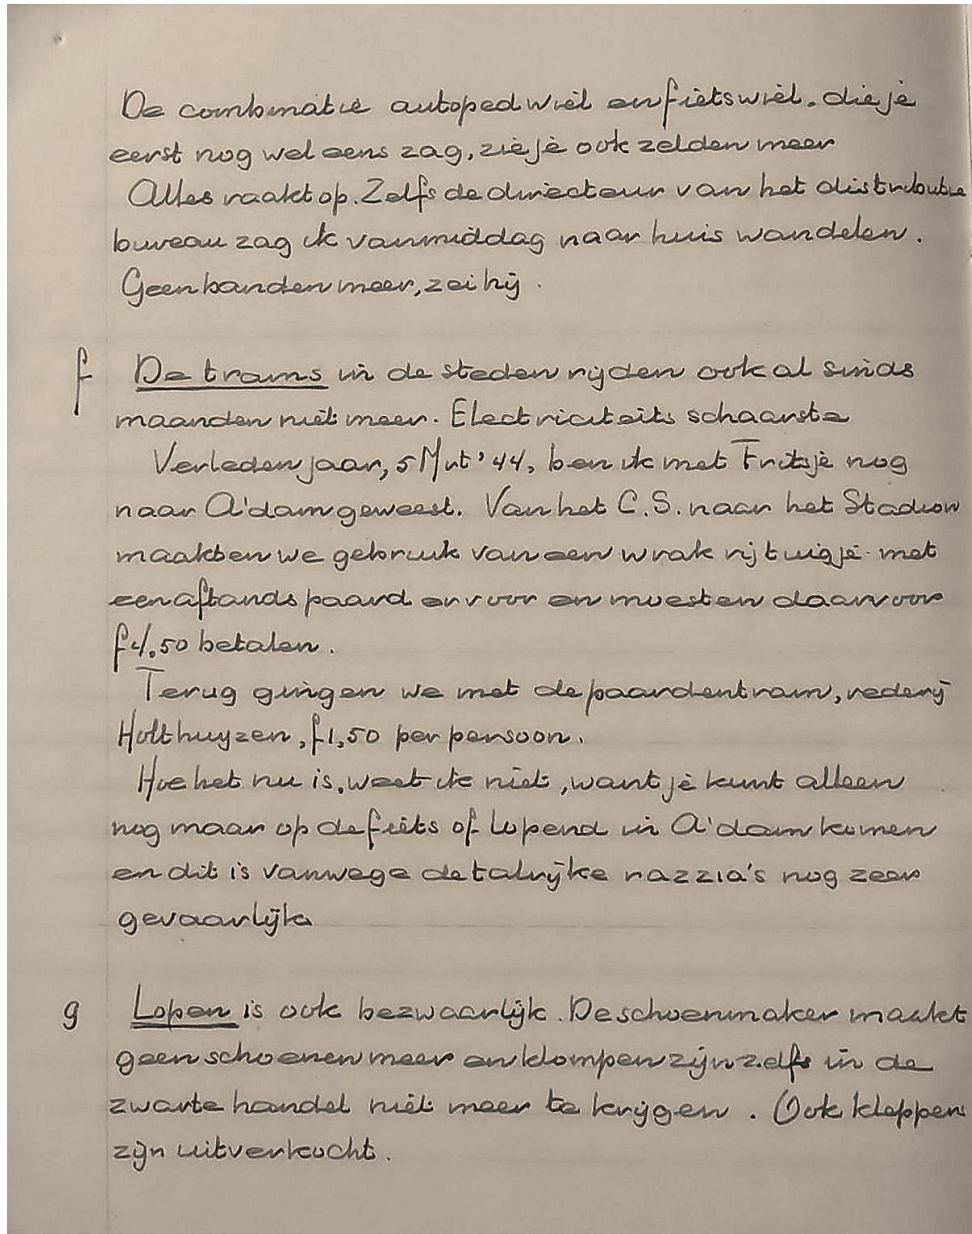 De combinatie autopedwiel en fietswiel, die je
eerst nog wel eens zag, zie je ook zelden meer
Alles raakt op. Zelfs de directeur van het distributie
bureau zag ik vanmiddag naar huis wandelen.
Geen banden meer, zei hij.
f De trams in de steden rijden ook al sinds
maanden niet meer. Electriciteits schaarste
Verleden jaar, 5 Mrt '44, ben ik met Fritsje nog
naar A'dam geweest. Van het C.S. naar het Stadion
maakten we gebruik van een wrak rijtuigje met
een aftands paard ervoor en moesten daarvoor
f 4,50 betalen.
Terug gingen we met de paardentram, rederij
Holthuyzen, f 1,50 per persoon.
Hoe het nu is, weet ik niet, want je kunt alleen
nog maar op de fiets of lopend in A'dam komen
en dit is vanwege de talrijke razzia's nog zeer
gevaarlijk
g Lopen is ook bezwaarlijk. De schoenmaker maakt
geen schoenen meer en klompen zijn zelfs in de
zwarte handel niet meer te krijgen. Ook kleppers
zijn uitverkocht.